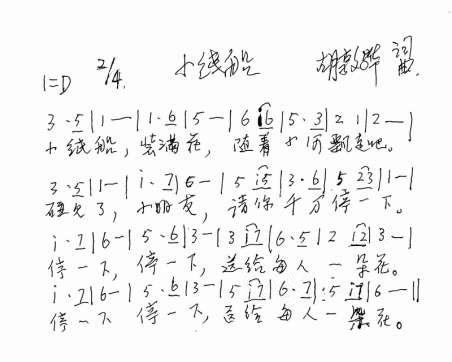 1=D 2/4. 小纸船 胡敦骅 词曲.
3·5|1—|1·6|5—|6 i6|5·3|2 1|2—|
小纸船，装满花，随着小河飘走吧。
3·5|1—|i·7|6—|5 i5|3·6|5 23|1—|
碰见了，小朋友，请你千万停一下。
i·7|6—|5·6|3—|3 i7|6·5|2 12|3—|
停一下，停一下，送给每人一朵花。
i·7|6—|5·6|3—|5 i7|6·7|5 i7|6—||
停一下 停一下，送给每人一朵花。